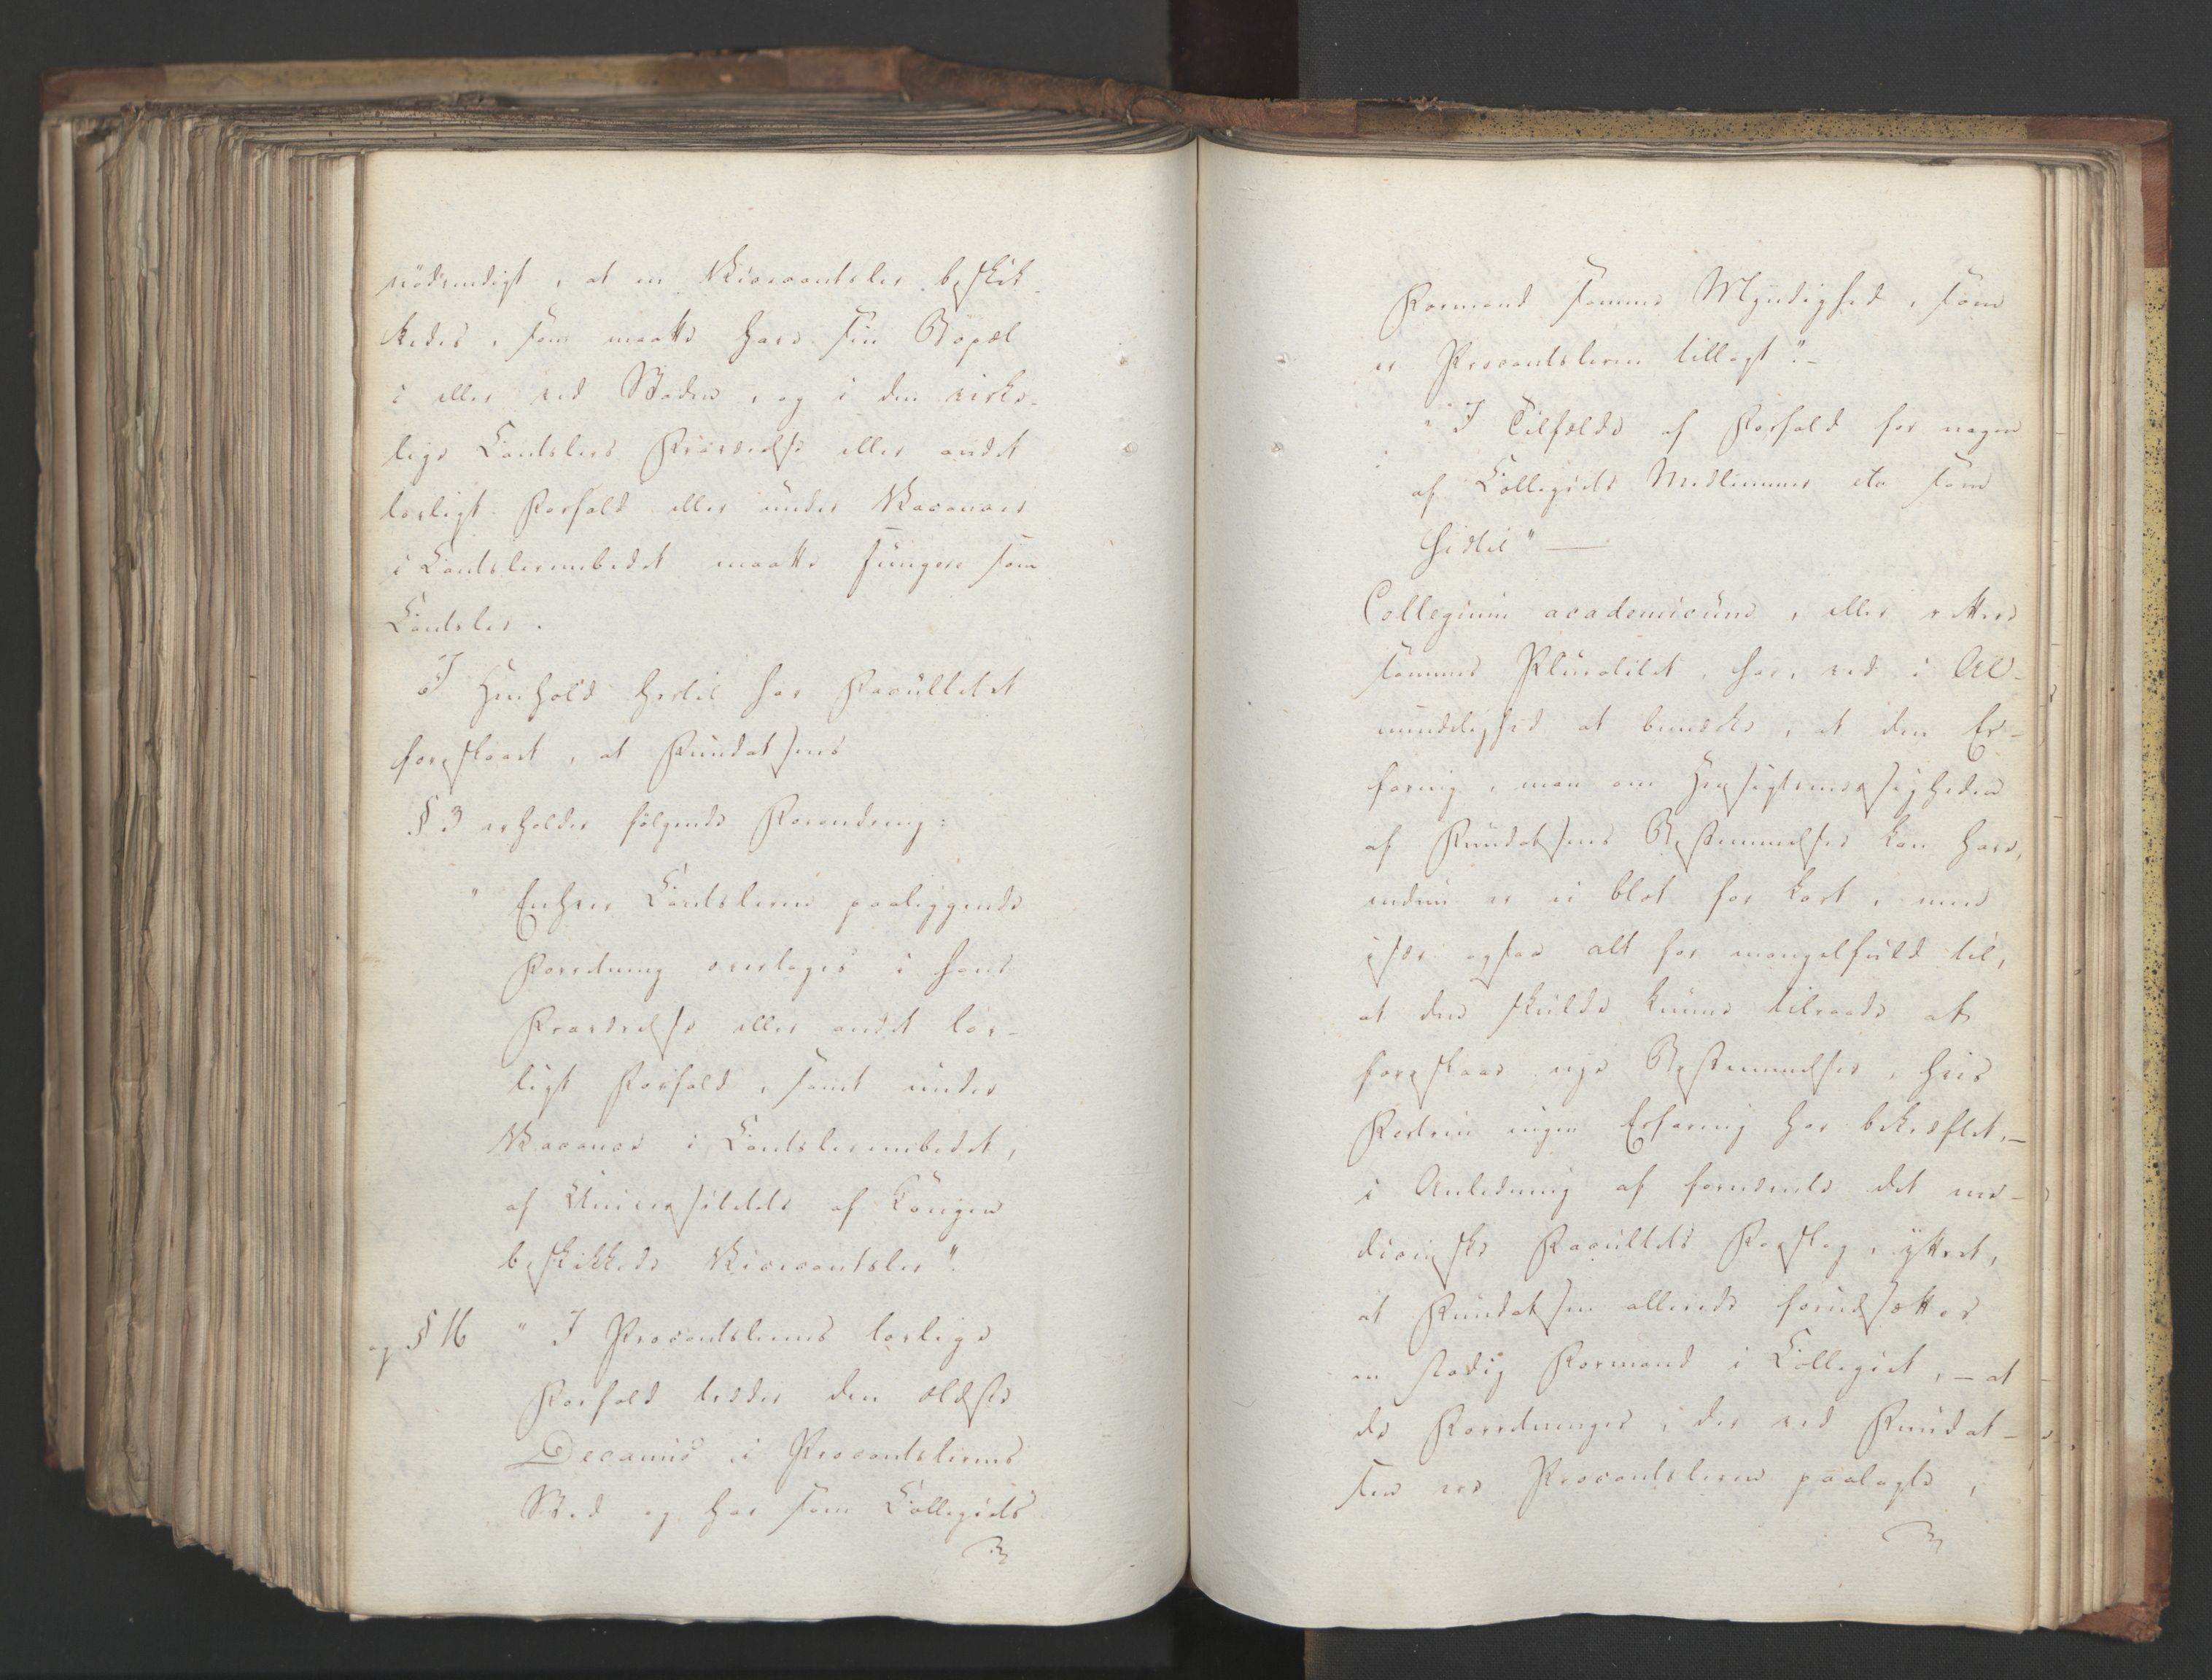 nödvendigt, at en Vicecantsler beskik-
kedes, som maatte have sin Bopæl
i eller ved Staden, og i den virke-
lige Cantslers Fraværelse eller andet
lovligt Forfald eller under Vacancer
i Cantslerembedet maatte fungere som
Cantsler.
I Henhold hertil har Facultetet
foreslaaet, at Fundatsens
§ 3 erholder følgende Forandring:
"Enhver Cantsleren paaliggende
Forretning overtages i hans
Fraværelse eller andet lov-
ligt Forfald, samt under
Vacance i Cantslerembedet,
af Universitetets af Kongen
beskikkede Vicecantsler".
og § 16 "I Procantslerens lovlige
Forfald træder den ældste
Decanus i Procantslerens
Sted og har som Collegiets
Formand samme Myndighed, som
er Procantsleren tillagt".-
"I Tilfælde af Forfald for nogen
af Collegiets Medlemmer etc som
hidtil" —
Collegium academicum, eller rettere
sammes Pluralitet, har, ved i Al-
mindelighed at bemærke, at den Er-
faring, man om Hensigtsmæssigheden
af Fundatsens Bestemmelser kan have,
endnu er ei blot for kort, men
især ogsaa alt for mangelfuld til,
at den skulde kunne tilraade at
foreslaae nye Bestemmelser, hvis
Fortrin ingen Erfaring har bekræftet,-
i Anledning af fornævnte det me-
dicinske Facultets Forslag, yttret,
at Fundatsen allerede forudsætter
en stadig Formand i Collegiet, - at
de Forretninger, der ved Fundat-
sen ere Procantsleren paalagte,